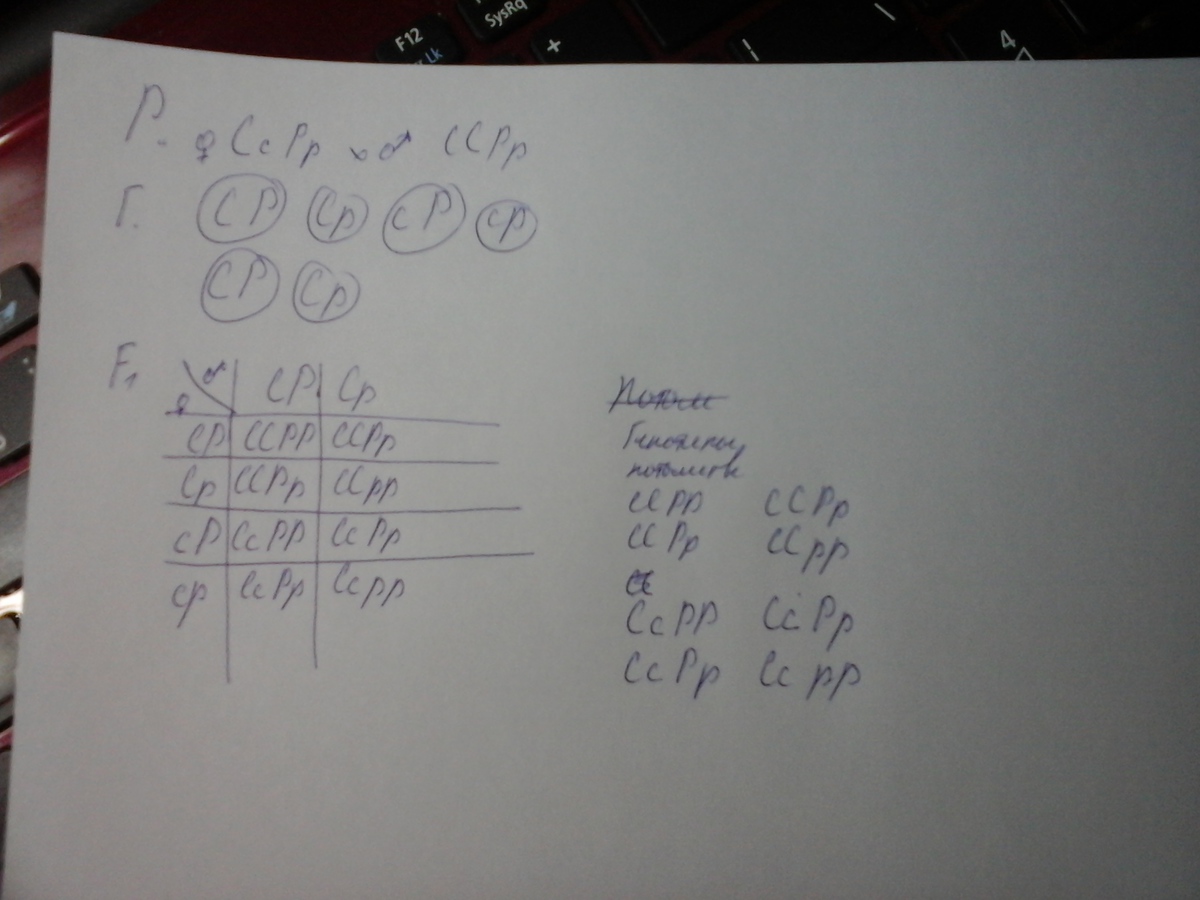 F12
SysRq
Lk
+
4
P. ♀ CcPp x ♂ CCPp
Г. CP Cp cP cp
CP Cp
F1 ♀ ♂ CP Cp
CP CCPP CCPp
Cp CCPp CCpp
cP CcPP CcPp
cp CcPp Ccpp
Потом
Генотипы
потомства
CCPP CCPp
CCPp CCpp
CcPP CcPp
CcPp Ccpp